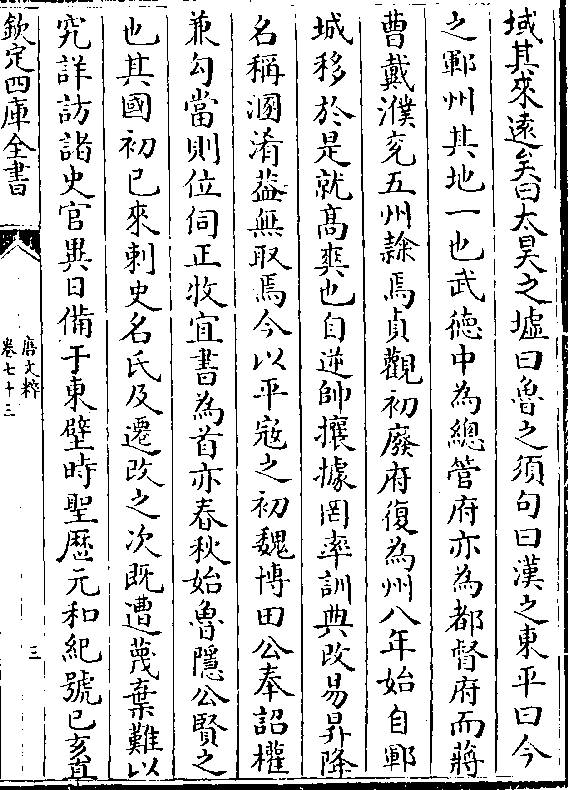 域其來遠矣曰太昊之墟曰魯之須句曰漢之東平曰今
之鄆州其地一也武德中為總管府亦為都督府而蔣
曹戴濮兖五州隷焉貞觀初廢府復為州八年始自鄆
城移於是就髙爽也自逆帥攘據罔率訓典改易昇降
名稱溷淆葢無取焉今以平寇之初魏博田公奉詔權
兼勾當則位侔正牧宜書為首亦春秋始魯隱公賢之
也其國初已來刺史名氏及遷改之次既遭蔑棄難以
究詳訪諸史官異日備于東壁時聖厯元和紀號己亥直
欽定四庫全書
唐文粹
卷七十三
三